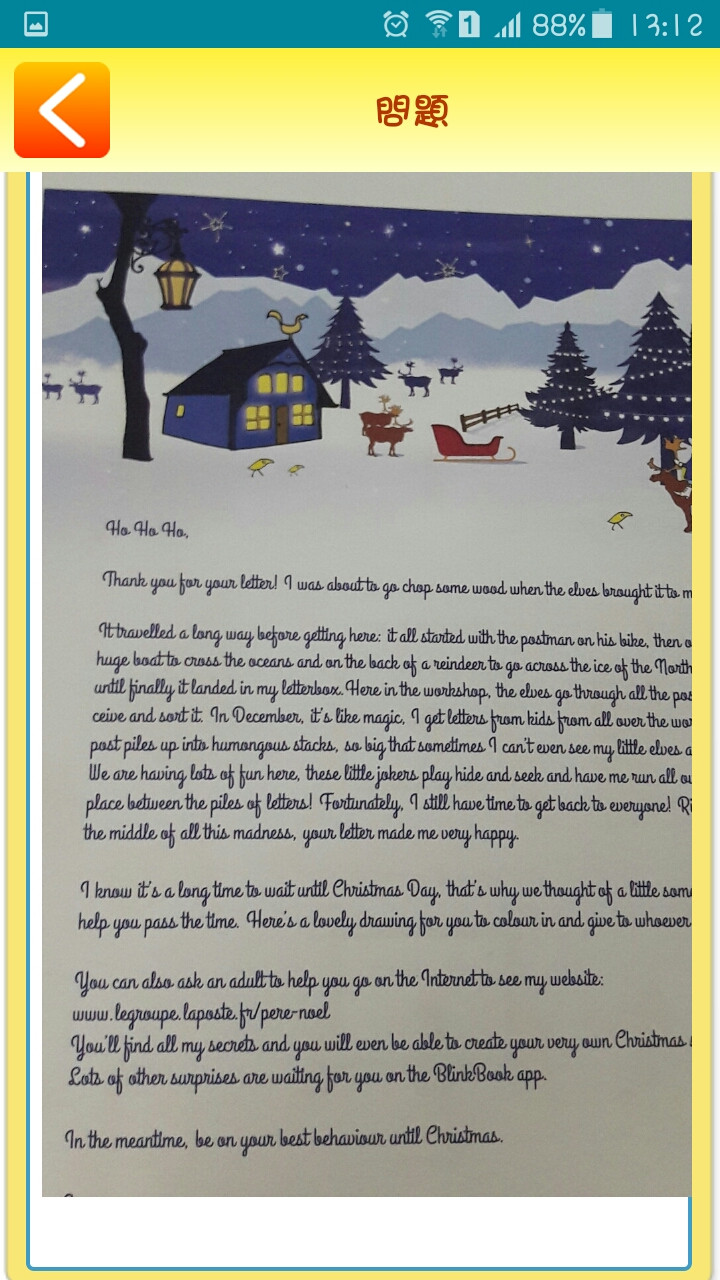 88% 13:12
問題
Ho Ho Ho,
Thank you for your letter! I was about to go chop some wood when the elves brought it to m
It travelled a long way before getting here: it all started with the postman on his bike, then o
huge boat to cross the oceans and on the back of a reindeer to go across the ice of the North
until finally it landed in my letterbox. Here in the workshop, the elves go through all the pos
ceive and sort it. In December, it's like magic, I get letters from kids from all over the wor
post piles up into humongous stacks, so big that sometimes I can't even see my little elves a
We are having lots of fun here, these little jokers play hide and seek and have me run all ou
place between the piles of letters! Fortunately, I still have time to get back to everyone! Ri
the middle of all this madness, your letter made me very happy.
I know it's a long time to wait until Christmas Day, that's why we thought of a little som
help you pass the time. Here's a lovely drawing for you to colour in and give to whoever
You can also ask an adult to help you go on the Internet to see my website:
www.legroupe.laposte.fr/pere-noel
You'll find all my secrets and you will even be able to create your very own Christmas
Lots of other surprises are waiting for you on the BlinkBook app.
In the meantime, be on your best behaviour until Christmas.